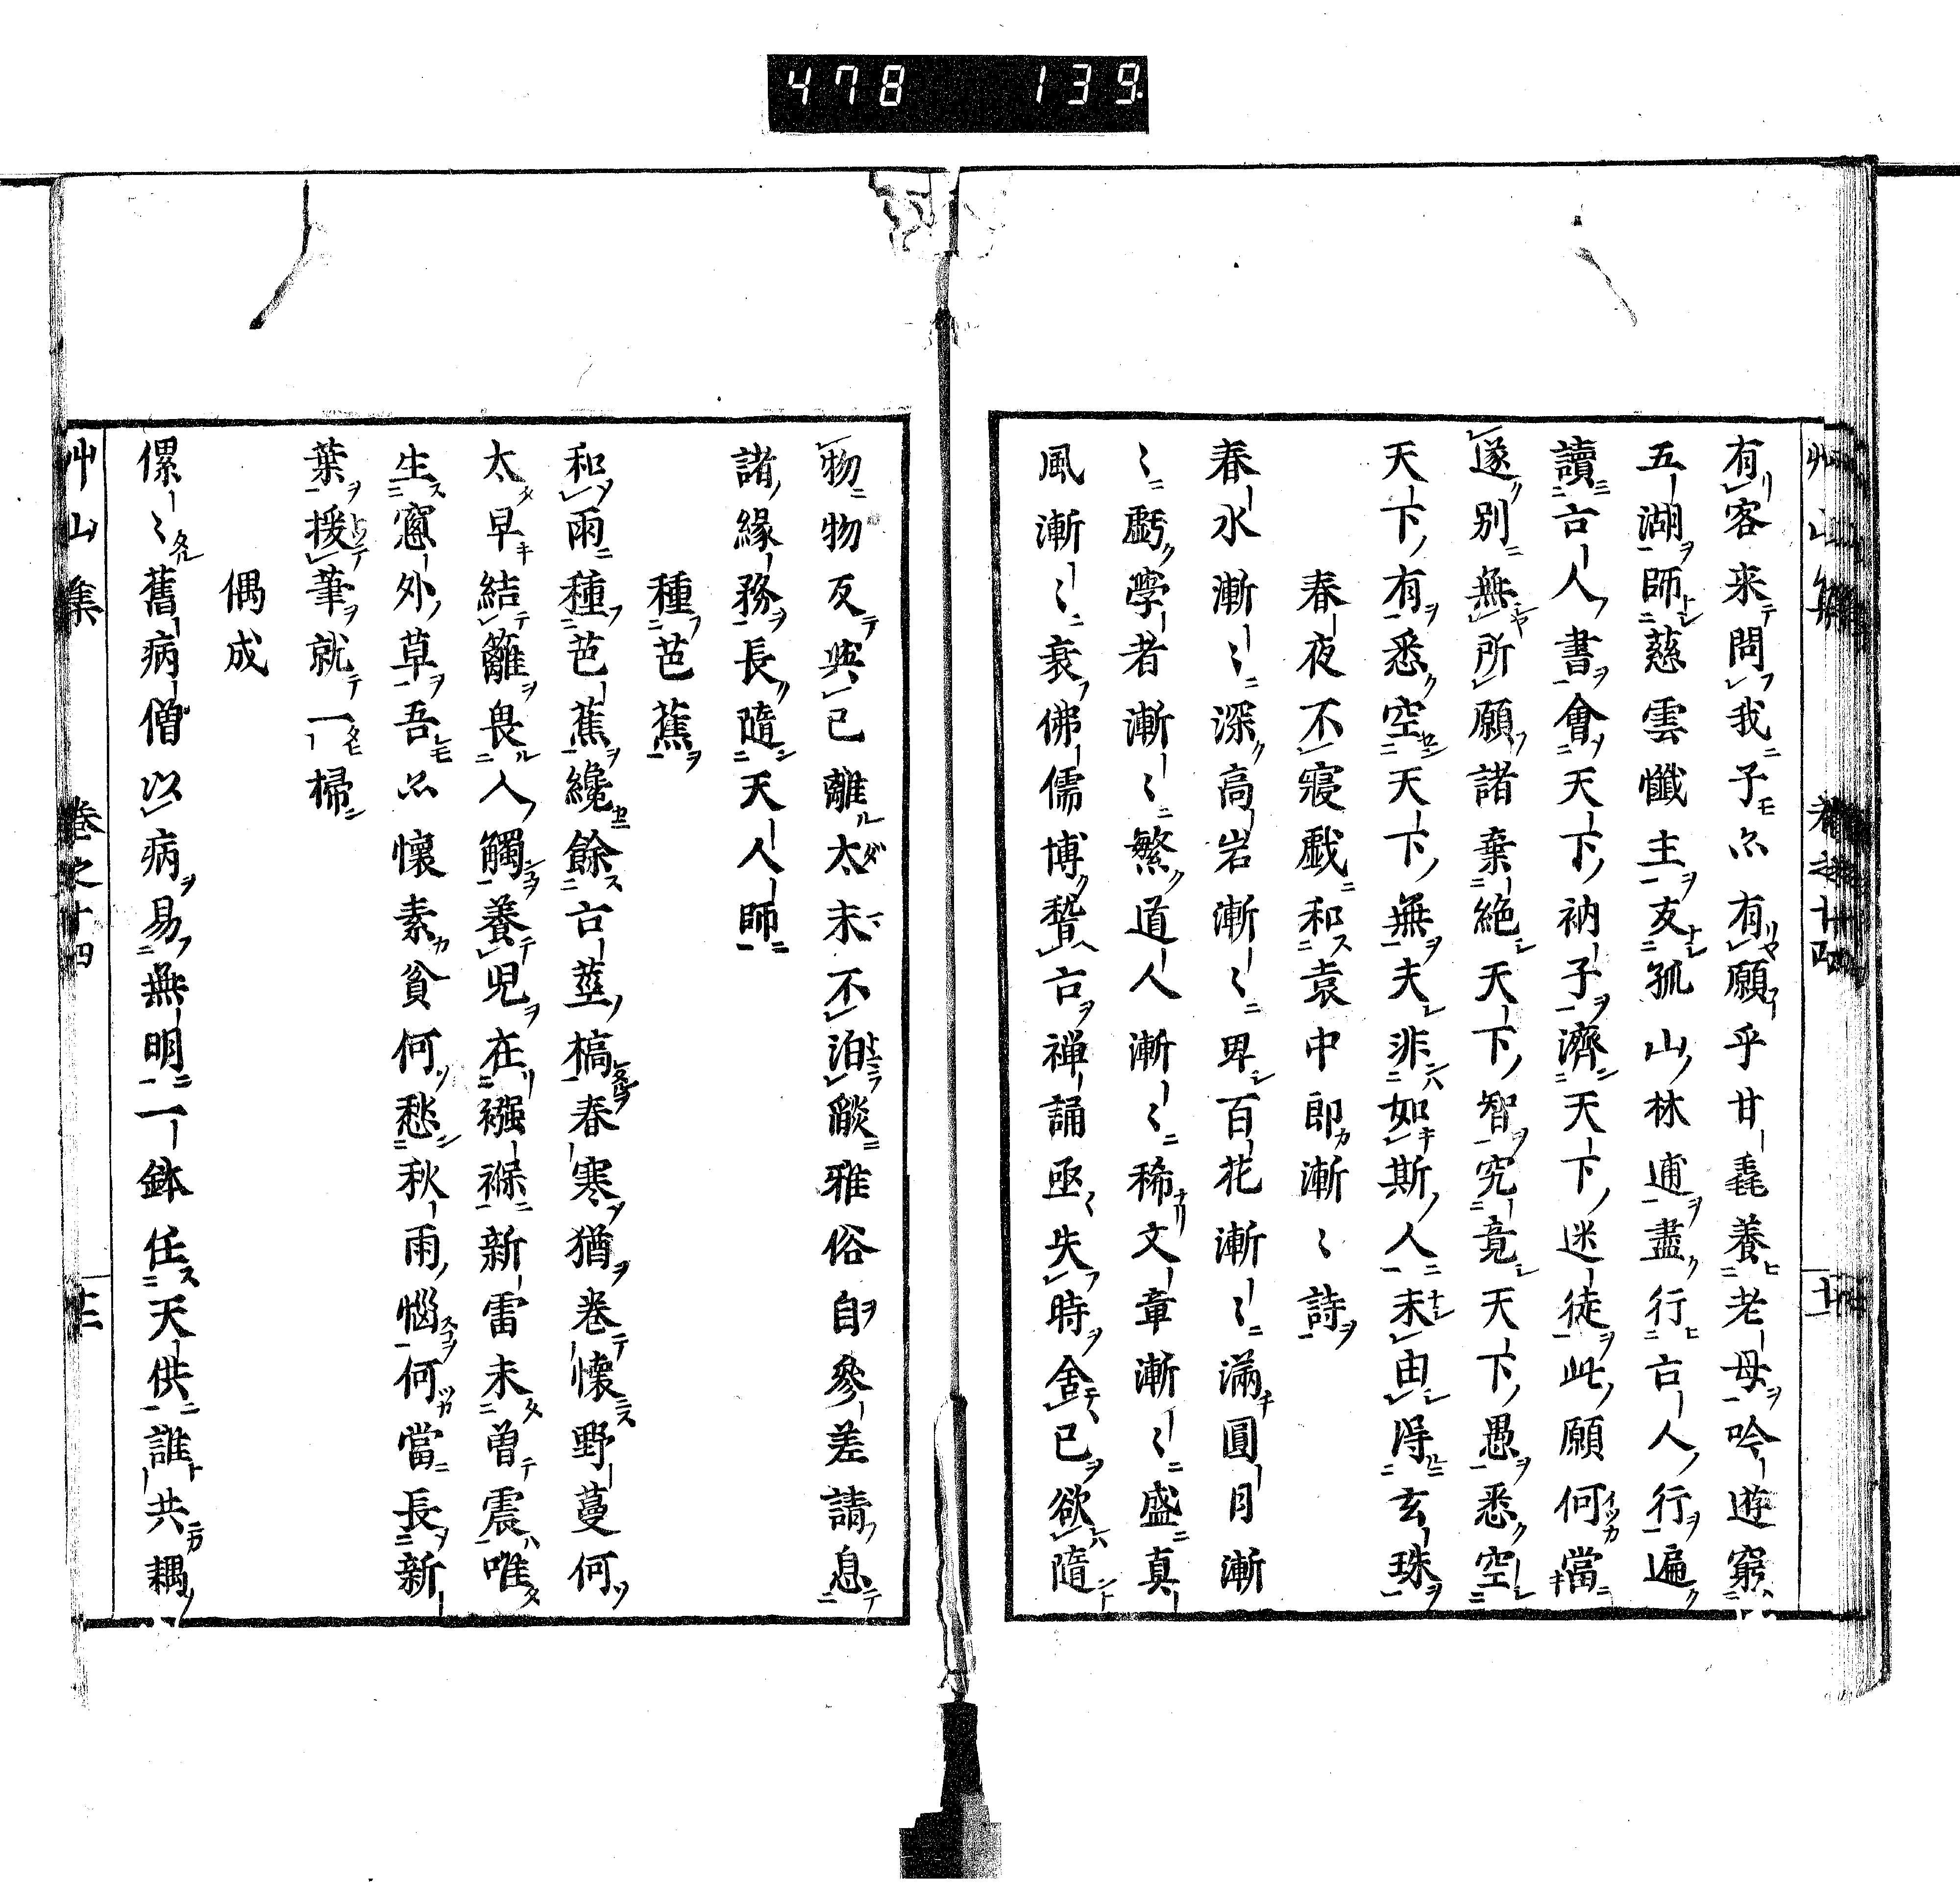 478 139
有客來問我子亦有願乎甘毳養老母吟遊窮
五湖師慈雲懺主友孤山林逋盡行古人行遍
讀古人書會天下衲子濟天下迷徒此願何當
遂別無所願諸棄絶天下智究竟天下愚悉空
天下有悉空天下無夫非如斯人末由得玄珠
春夜不寢戲和袁中郎漸〻詩
春水漸〻深高岩漸〻卑百花漸〻滿圓月漸
〻虧學者漸〻繁道人漸〻稀文章漸〻盛真
風漸〻衰佛儒博聱古禅誦亟失時舍已欲隨
物物反與已離太末不泊燄雅俗自參差請息
諸緣務長隨天人師
種芭蕉
和雨種芭蕉纔餘古莖槁春寒猶卷懷野蔓何
太早結籬畏人觸養児在襁褓新雷未曽震唯
生窓外草吾亦懷素貧何愁秋雨惱何當長新
葉援筆就一掃
偶成
傫〻舊病僧以病易無明一鉢任天供誰共耦
艸山集 卷之十四 十二